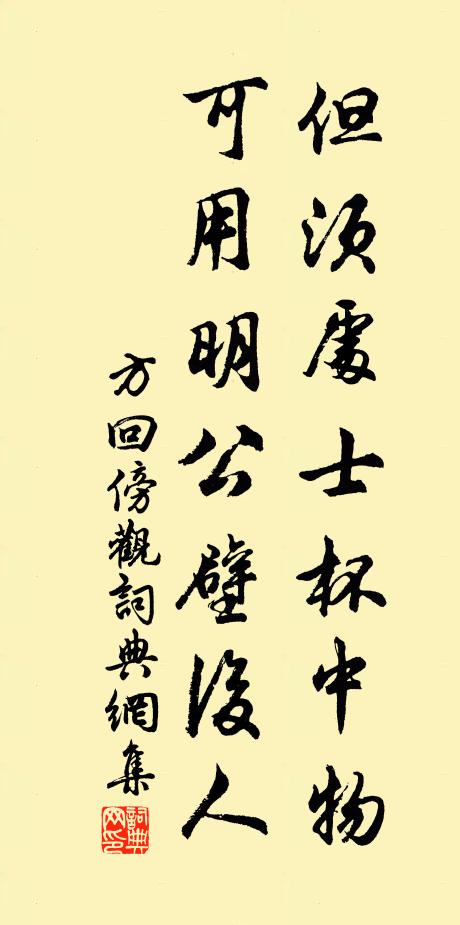 但須處士杯中物
可用明公壁後人
方回傍觀詞典網集
詞典網印